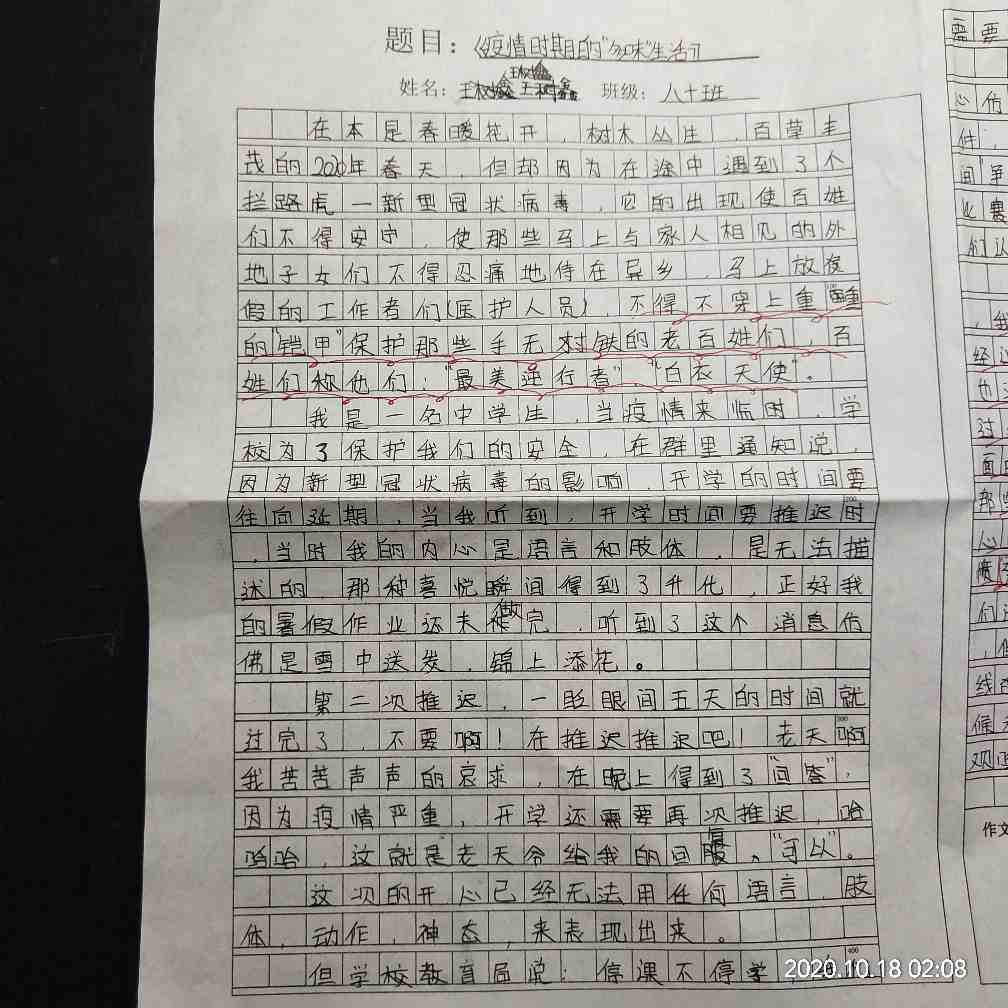 题目：《疫情时期的"多味"生活》
姓名： 王树鑫 班级：八十班
在本是春暖花开，树木丛生，百草丰
茂的2020年春天，但却因为在途中遇到了个
拦路虎一新型冠状病毒，它的出现使百姓
们不得安宁，使那些马上与家人相见的外
地子女们不得忍痛地待在异乡，马上放夜
假的工作者们(医护人员)，不得不穿上重重
的"铠甲"保护那些手无村铁的老百姓们，百
姓们称他们："最美逆行者"，"白衣天使"。
我是一名中学生，当疫情来临时，学
校为了保护我们的安全，在群里通知说，
因为新型冠状病毒的影响，开学的时间要
往向延期，当我听到，开学时间要推迟时
，当时我的内心是语言和肢体，是无法描
述的，那种喜悦瞬间得到了升化，正好我
的暑假作业还未做完，听到了这个消息仿
佛是雪中送发，锦上添花。
第二次推迟，一眨眼间五天的时间就
过完了，不要啊！在推迟推迟吧！老天啊
我苦苦声声的哀求，在晚上得到了"回答"，
因为疫情严重，开学还需要再次推迟，哈
哈哈，这就是老天爷给我的回复，"可以"。
这次的开心已经无法用任何语言，肢
体，动作，神态，来表现出来。
但学校教育局说：停课不停学
2020.10.18 02:08
需要
心伤
件，
间争
比赛
们认
，我
经过
也
过
面
部
心
们
，但
线
候
观
作文